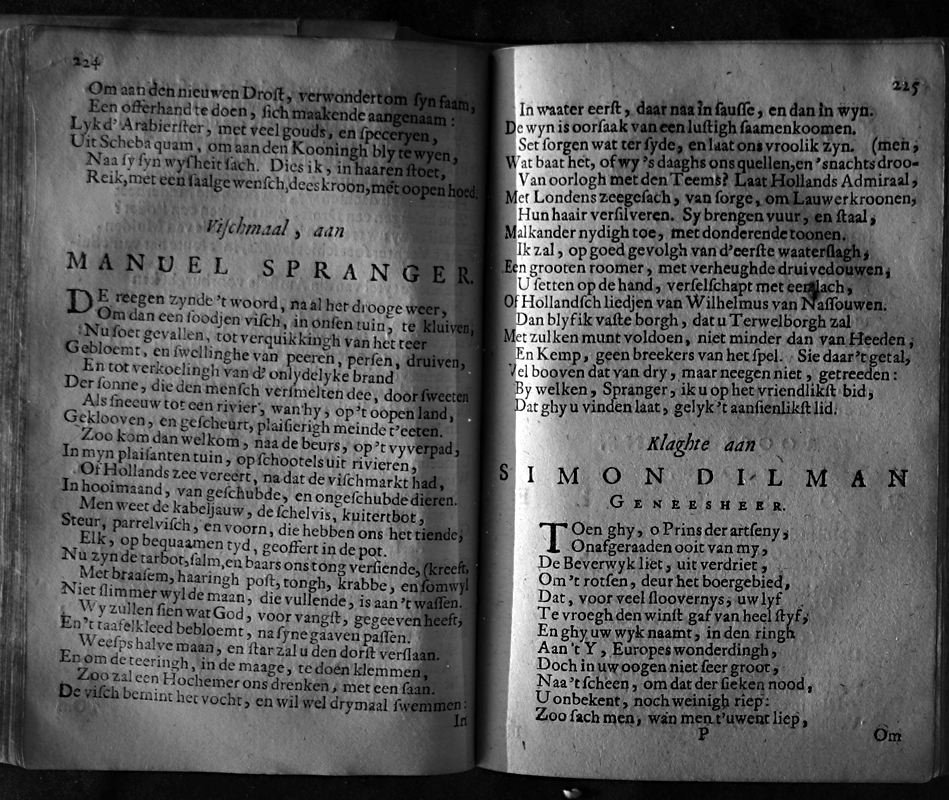 224
Om aan den nieuwen Drost, verwondert om syn faam,
Een offerhand te doen, sich maakende aangenaam:
Lyk d' Arabierster, met veel gouds, en speceryen,
Uit Scheba quam, om aan den Kooningh bly te wyen,
Naa sy syn wysheit sach. Dies ik, in haaren stoet,
Reik, met een saalge wensch, dees kroon, met oopen hoed.
Vischmaal, aan
MANUEL SPRANGER.
DE reegen zynde 't woord, na al het drooge weer,
Om dan een soodjen visch, in onsen tuin, te kluiven,
Nu soet gevallen, tot verquikkingh van het teer
Gebloemt, en swellinghe van peeren, persen, druiven,
En tot verkoelingh van d' onlydelyke brand
Der sonne, die den mensch versmelten dee, door sweeten
Als sneeuw tot een rivier, wan hy, op 't oopen land,
Geklooven, en gescheurt, plaisierigh meinde t'eeten.
Zoo kom dan welkom, naa de beurs, op 't vyverpad,
In myn plaisanten tuin, op schootels uit rivieren,
Of Hollands zee vereert, na dat de vischmarkt had,
In hooimaand, van geschubde, en ongeschubde dieren.
Men weet de kabeljauw, de schelvis, kuitertbot,
Steur, parrelvisch, en voorn, die hebben ons het tiende,
Elk, op bequaamen tyd, geoffert in de pot.
Nu zyn de tarbot, salm, en baars ons tong versiende, (kreeft,
Met braasem, haaringh post, tongh, krabbe, en somwyl
Niet slimmer wyl de maan, die vullende, is aan 't wassen.
Wy zullen sien wat God, voor vangst, gegeeven heeft,
En 't taafelkleed bebloemt, na syne gaaven passen.
Weesps halve maan, en star zal u den dorst verslaan.
En om de teeringh, in de maage, te doen klemmen,
Zoo zal een Hochemer ons drenken, met een saan.
De visch bemint het vocht, en wil wel drymaal swemmen:
In
225
In waater eerst, daar naa in sausse, en dan in wyn.
De wyn is oorsaak van een lustigh saamenkoomen.
Set sorgen wat ter syde, en laat ons vroolik zyn. (men,
Wat baat het, of wy 's daaghs ons quellen, en 's nachts droo-
Van oorlogh met den Teems? Laat Hollands Admiraal,
Met Londens zeegesach, van sorge, om Lauwerkroonen,
Hun haair versilveren. Sy brengen vuur, en staal,
Malkander nydigh toe, met donderende toonen.
Ik zal, op goed gevolgh van d'eerste waaterslagh,
Een grooten roomer, met verheughde druivedouwen,
U setten op de hand, verselschapt met een lach,
Of Hollandsch liedjen van Wilhelmus van Nassouwen.
Dan blyf ik vaste borgh, dat u Terwelborgh zal
Met zulken munt voldoen, niet minder dan van Heeden,
En Kemp, geen breekers van het spel. Sie daar 't getal,
Vel booven dat van dry, maar neegen niet, getreeden:
By welken, Spranger, ik u op het vriendlikst bid,
Dat ghy u vinden laat, gelyk 't aansienlikst lid.
Klaghte aan
SIMON DILMAN
GENEESHEER.
TOen ghy, o Prins der artseny,
Onafgeraaden ooit van my,
De Beverwyk liet, uit verdriet,
Om 't rotsen, deur het boergebied,
Dat, voor veel sloovernys, uw lyf
Te vroegh den winst gaf van heel styf,
En ghy uw wyk naamt, in den ringh
Aan 't Y, Europes wonderdingh,
Doch in uw oogen niet seer groot,
Naa 't scheen, om dat der sieken nood,
U onbekent, noch weinigh riep:
Zoo sach men, wan men t'uwent liep,
P
Om